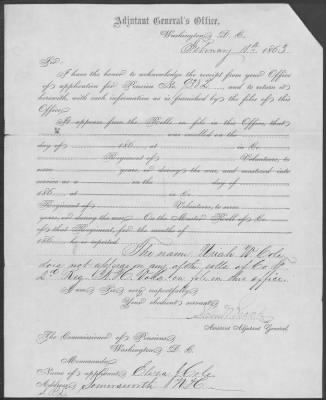 Adjutant General's Office,
Washington, D. C.
February 1863
Sir:
I have the honor to acknowledge the receipt from your Office
of application for Pension No. and to return it
herewith, with such information as is furnished by the files of this
Office.
It appears from the Rolls on file in this Office, that
was enrolled on the
day of 186 , at in Co.
Regiment of Volunteers, to
serve years, or during the war, and mustered into
service as a on the day of
186 , at in Co.
Regiment of Volunteers, to serve
years, or during the war. On the Muster Roll of Co.
of that Regiment, for the months of
186 , he is reported
The name Uriah W. Cole
does not appear on any of the rolls of Co. G
2d Reg. N. H. Vols. on file in this office.
I am, Sir, very respectfully,
Your obedient servant,
Assistant Adjutant General.
The Commissioner of Pensions,
Washington, D. C.
Memoranda:
Name of applicant, Eliza J. Cole
Address, Somersworth N.H.